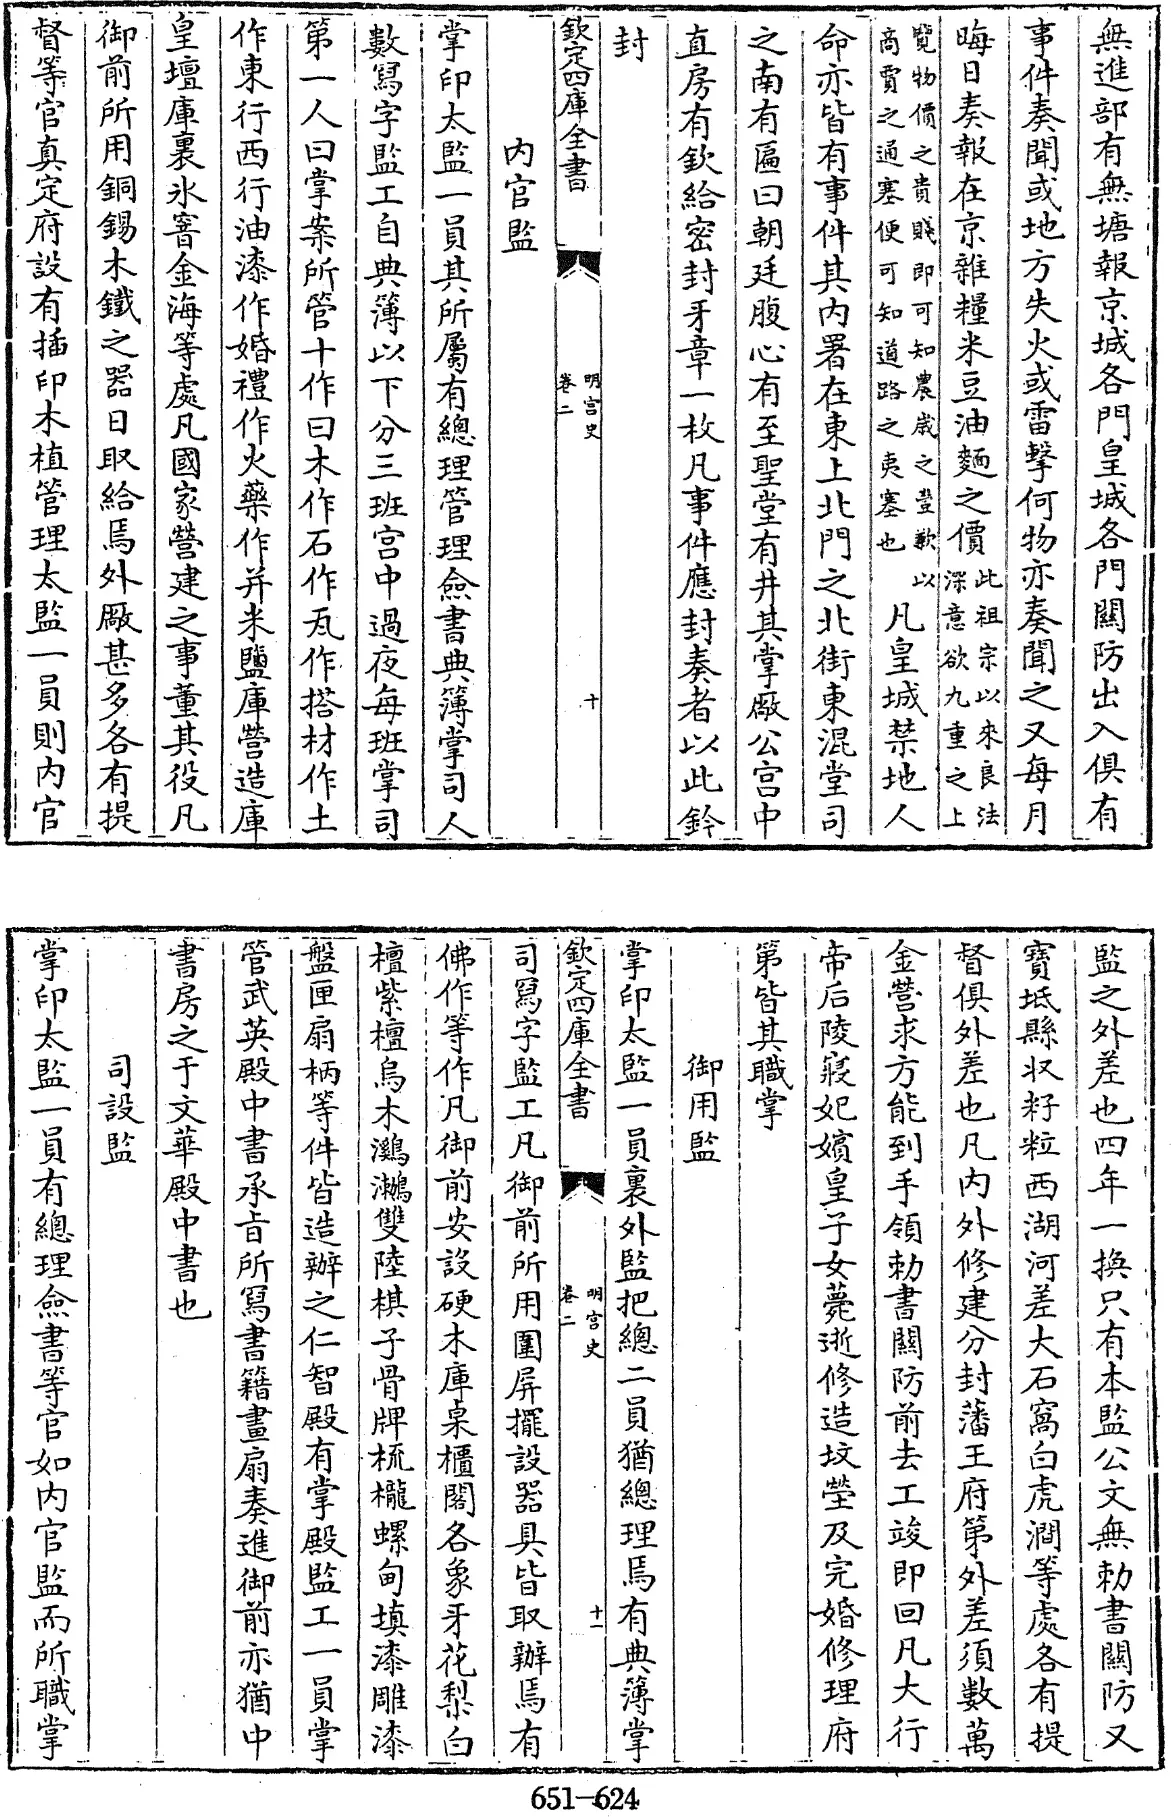 無進部有無塘報京城各門皇城各門關防出入俱有
事件奏聞或地方失火或雷擊何物亦奏聞之又每月
晦日奏報在京雜糧米豆油麵之價此祖宗以來良法深意欲九重之上
覽物價之貴賤即可知農歲之豐歉以商賈之通塞便可知道路之夷塞也凡皇城禁地人
命亦皆有事件其内署在東上北門之北街東混堂司
之南有匾曰朝廷腹心有至聖堂有井其掌廠公宫中
直房有欽給密封牙章一枚凡事件應封奏者以此鈐
封
欽定四庫全書
明宫史
卷二
十
内官監
掌印太監一員其所屬有總理管理僉書典簿掌司人
數寫字監工自典簿以下分三班宫中過夜每班掌司
第一人曰掌案所管十作曰木作石作瓦作搭材作土
作東行西行油漆作婚禮作火藥作并米鹽庫營造庫
皇壇庫裏氷窨金海等處凡國家營建之事董其役凡
御前所用銅錫木鐵之器日取給焉外厰甚多各有提
督等官真定府設有插印木植管理太監一員則内官
監之外差也四年一換只有本監公文無勅書關防又
寳坻縣収籽粒西湖河差大石窩白虎澗等處各有提
督俱外差也凡内外修建分封藩王府第外差須數萬
金營求方能到手領勅書關防前去工竣即回凡大行
帝后陵寢妃嬪皇子女薨逝修造坟塋及完婚修理府
第皆其職掌
御用監
掌印太監一員裏外監把總二員猶總理焉有典簿掌
欽定四庫全書
明宫史
卷二
十一
司寫字監工凡御前所用圍屏擺設器具皆取辦焉有
佛作等作凡御前安設硬木庫桌櫃閣各象牙花梨白
檀紫檀烏木鸂鶒雙陸棋子骨牌梳櫳螺甸填漆雕漆
盤匣扇柄等件皆造辦之仁智殿有掌殿監工一員掌
管武英殿中書承旨所寫書籍畫扇奏進御前亦猶中
書房之于文華殿中書也
司設監
掌印太監一員有總理僉書等官如内官監而所職掌
651-624